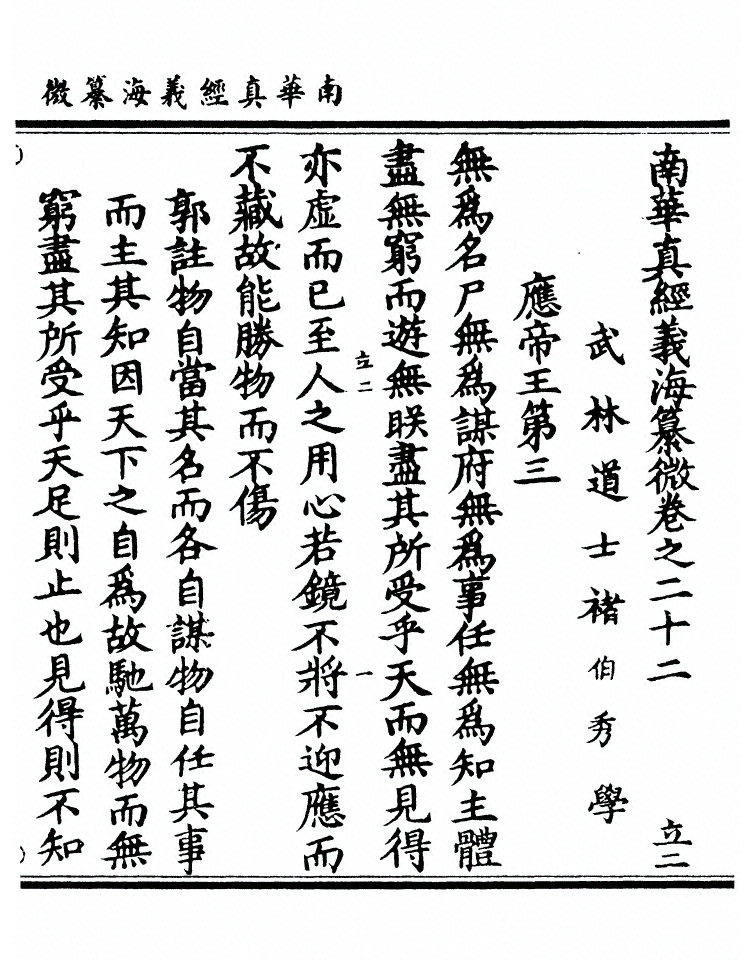 南華真經義海纂微
南華真經義海纂微卷之二十二 立二
武林道士褚伯秀學
應帝王第三
無為名尸無為謀府無為事任無為知主體
盡無窮而遊無眹盡其所受乎天而無見得
立二 一
亦虛而已至人之用心若鏡不將不迎應而
不藏故能勝物而不傷
郭註物自當其名而各自謀物自任其事
而主其知因天下之自為故馳萬物而無
窮盡其所受乎天足則止也見得則不知